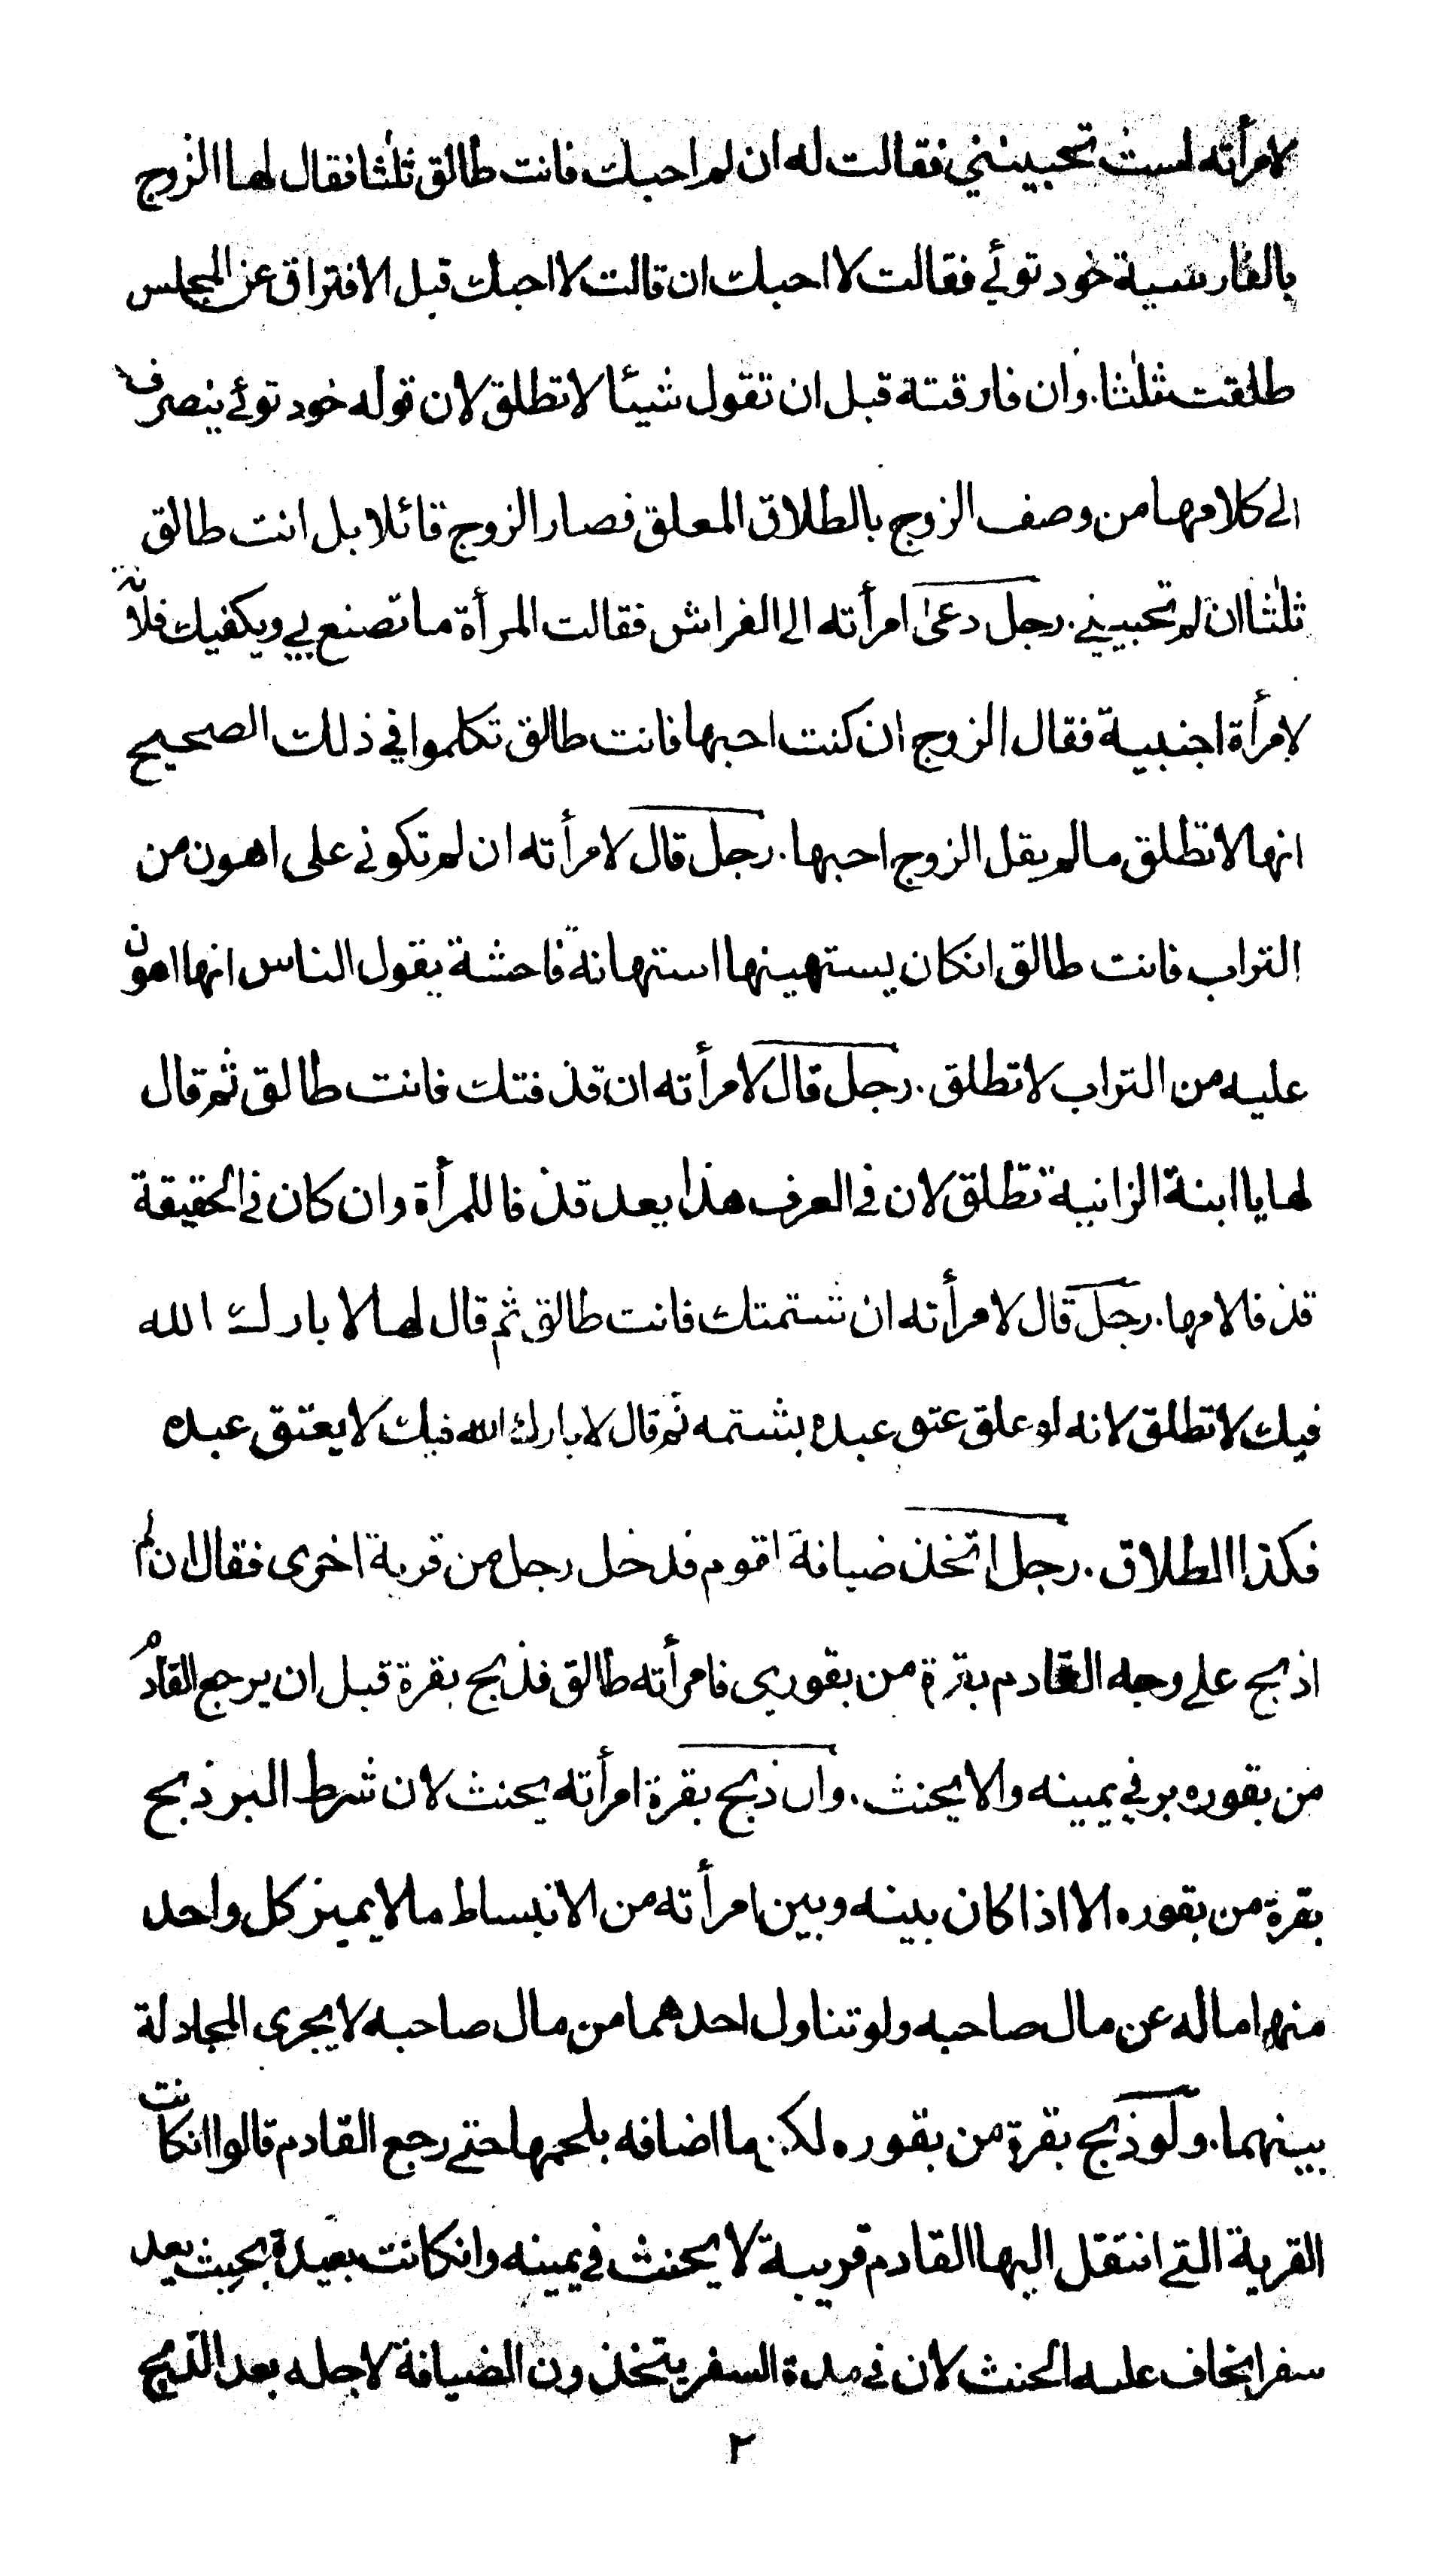 لامرأته لست تحبينني فقالت له ان لم احبك فانت طالق ثلثا فقال لها الزوج
بالفارسية خود توئي فقالت لا احبك ان قالت لا احبك قبل الافتراق عن المجلس
طلقت ثلثا. وان فارقتة قبل ان تقول شيئا لا تطلق لان قوله خود توئي ينصرف
الى كلامها من وصف الزوج بالطلاق المعلق فصار الزوج قائلا بل انت طالق
ثلثا ان لم تحبيني. رجل دعى امرأته الى الفراش فقالت المرأة ما تصنع بي ويكفيك فلانة
لامرأة اجنبية فقال الزوج ان كنت احبها فانت طالق تكلموا في ذلك الصحيح
انها لا تطلق ما لم يقل الزوج احبها. رجل قال لامرأته ان لم تكوني على اهون من
التراب فانت طالق انكان يستهينها استهانة فاحشة يقول الناس انها اهون
عليه من التراب لا تطلق. رجل قال لامرأته ان قذفتك فانت طالق ثم قال
لها يا ابنة الزانية تطلق لان في العرف هذا يعد قذفا للمرأة وان كان في الحقيقة
قذفا لامها. رجل قال لامرأته ان شتمتك فانت طالق ثم قال لها لا بارك الله
فيك لا تطلق لانه لو علق عتق عبده بشتمه ثم قال لا بارك الله فيك لا يعتق عبده
فكذا الطلاق. رجل اتخذ ضيافة لقوم فدخل رجل من قرية اخرى فقال ان لم
اذبح على وجه القادم بقرة من بقوري فامرأته طالق فذبح بقرة قبل ان يرجع القادم
من بقوره بر في يمينه والا يحنث. وان ذبح بقرة امرأته يحنث لان شرط البر ذبح
بقرة من بقوره الا اذا كان بينه وبين امرأته من الانبساط ما لا يميز كل واحد
منهما ماله عن مال صاحبه ولو تناول احدهما من مال صاحبه لا يجرى المجادلة
بينهما. ولو ذبح بقرة من بقوره لكن ما اضافه بلحمها حتى رجع القادم قالوا انكانت
القرية التي انتقل اليها القادم قريبة لا يحنث في يمينه وانكانت بعيدة بحيث يعد
سفرا يخاف عليه الحنث لان في مدة السفر يتخذون الضيافة لاجله بعد الذبح
٢